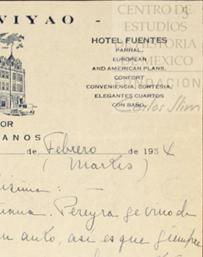 VIYAO
CENTRO DE
ESTUDIOS
HISTORIA
MEXICO
FUNDACION
Carlos Slim
HOTEL FUENTES
PARRAL.
EUROPEAN
AND AMERICAN PLANS.
CONFORT
CONVENIENCIA, CORTESIA,
ELEGANTES CUARTOS
CON BAÑO.
OR
ANOS
de Febrero de 1934
(Martes)
isima: —
Pereyra se vino de
auto, asi es que siempre